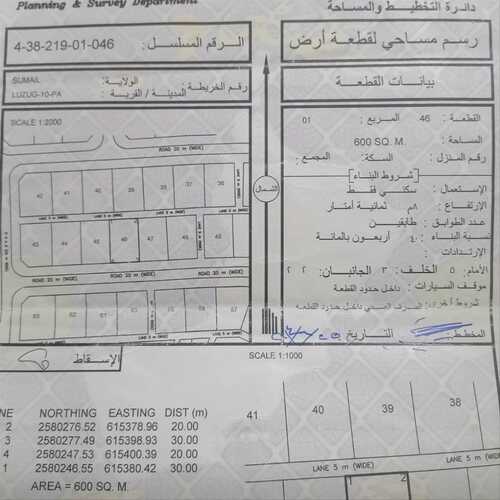 Planning & Survey Department
دائرة التخطيط والمساحة
رسم مساحي لقطعة أرض
الرقم المسلسل : 4-38-219-01-046
بيانات القطعة
رقم الخريطة :
الولاية :
المدينة / القرية :
SUMAIL
LUZUG-10-PA
القطعة : 46 المربع : 01
المساحة : 600 SQ. M.
رقم المنزل : السكة : المجمع :
شروط البناء
الإستعمال : سكني فقط
الإرتفاع : ٨م ثمانية أمتار
عدد الطوابق : طابقين
نسبة البناء : ٤٠ أربعون بالمائة
الإرتدادات :
الأمام : ٥ الخلف : ٣ الجانبان : ٢ ٢
موقف السيارات : داخل حدود القطعة
شروط أخرى : الصرف الصحي داخل حدود القطعة
المخطط :
التاريخ
SCALE 1:2000
ROAD 20 m (WIDE)
42 41 40 39 38
LANE 5 m (WIDE)
43 44 45 46 47
ROAD 20 m (WIDE)
الشمال
LANE 5 m (WIDE)
الإسقاط
SCALE 1:1000
NE NORTHING EASTING DIST (m)
2 2580276.52 615378.96 20.00
3 2580277.49 615398.93 30.00
4 2580247.53 615400.39 20.00
1 2580246.55 615380.42 30.00
AREA = 600 SQ. M.
41 40 39 38
LANE 5 m (WIDE)
1 2